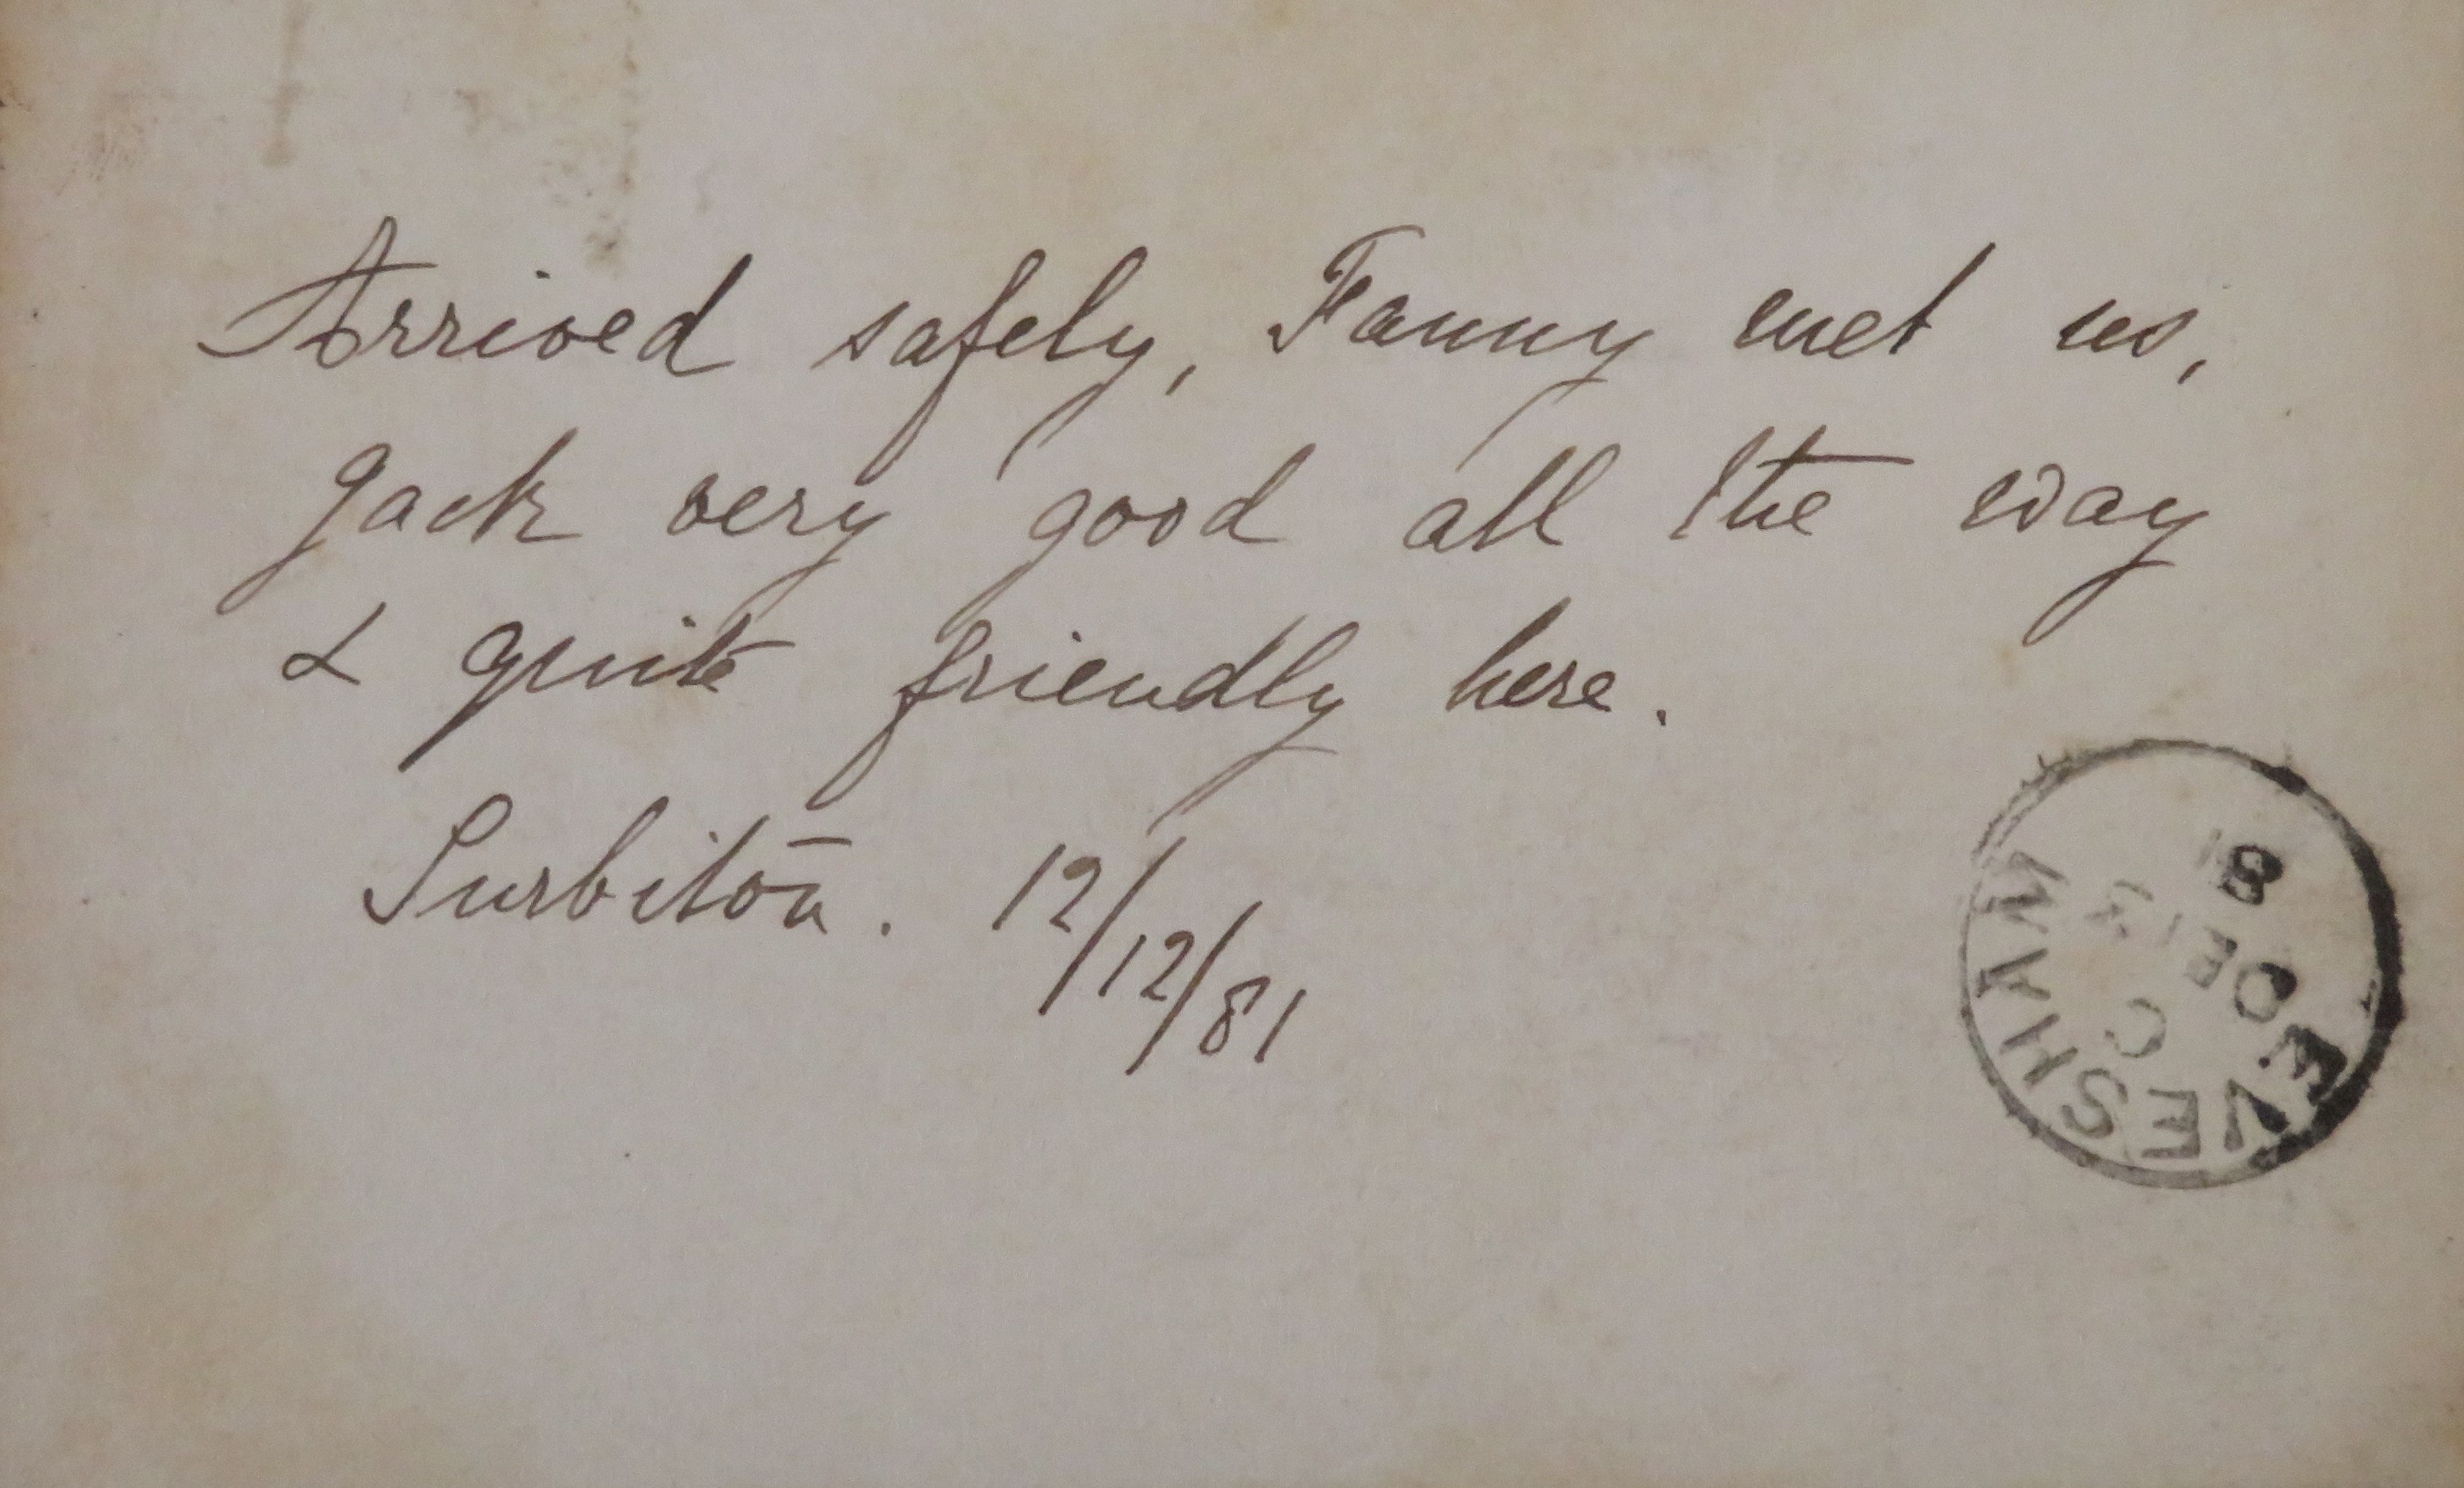 Arrived safely, Fanny met us,
Jack very good all the way
& quite friendly here.
Surbiton. 12/12/81
EVESHAM
C
DE 13
81